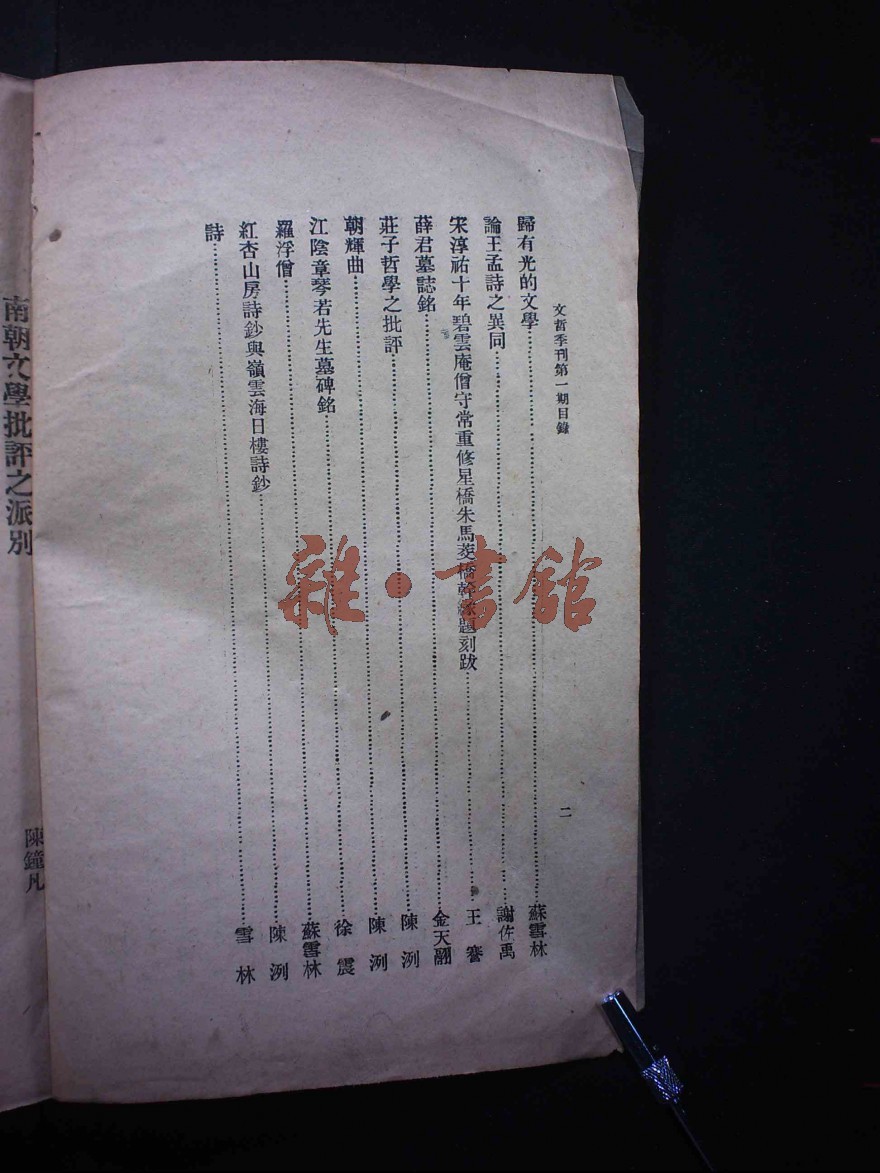 文哲季刊第一期目錄
二
歸有光的文學……蘇雪林
論王孟詩之異同……謝佐禹
宋淳祐十年碧雲庵僧守常重修星橋朱馬菱橋幹緣題刻跋……王謇
薛君墓誌銘……金天翮
莊子哲學之批評……陳洌
朝輝曲……陳洌
江陰章琴若先生墓碑銘……徐震
羅浮僧……蘇雪林
紅杏山房詩鈔與嶺雲海日樓詩鈔……陳洌
詩……雪林
南朝文學批評之派別
陳鐘凡
雜·書館